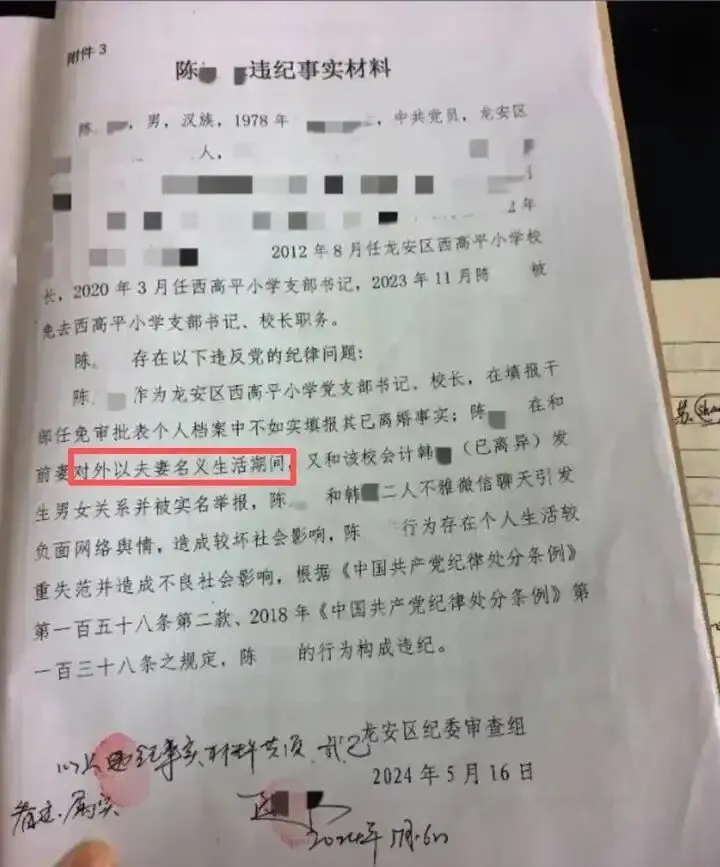 附件 3
陈 违纪事实材料
陈 ，男，汉族，1978 年 ，中共党员，龙安区
人，
2 年
2012 年 8 月任龙安区西高平小学校
长，2020 年 3 月任西高平小学支部书记，2023 年 11 月陈 被
免去西高平小学支部书记、校长职务。
陈 存在以下违反党的纪律问题：
陈 作为龙安区西高平小学党支部书记、校长，在填报干
部任免审批表个人档案中不如实填报其已离婚事实；陈 在和
前妻对外以夫妻名义生活期间，又和该校会计韩 （已离异）发
生男女关系并被实名举报，陈 和韩 二人不雅微信聊天引发
负面网络舆情，造成较坏社会影响，陈 行为存在个人生活较
重失范并造成不良社会影响，根据《中国共产党纪律处分条例》
第一百五十八条第二款、2018 年《中国共产党纪律处分条例》第
一百三十八条之规定，陈 的行为构成违纪。
龙安区纪委审查组
2024 年 5 月 16 日
以上违纪事实材料共 页，我已
看过，属实
2024年5月16日